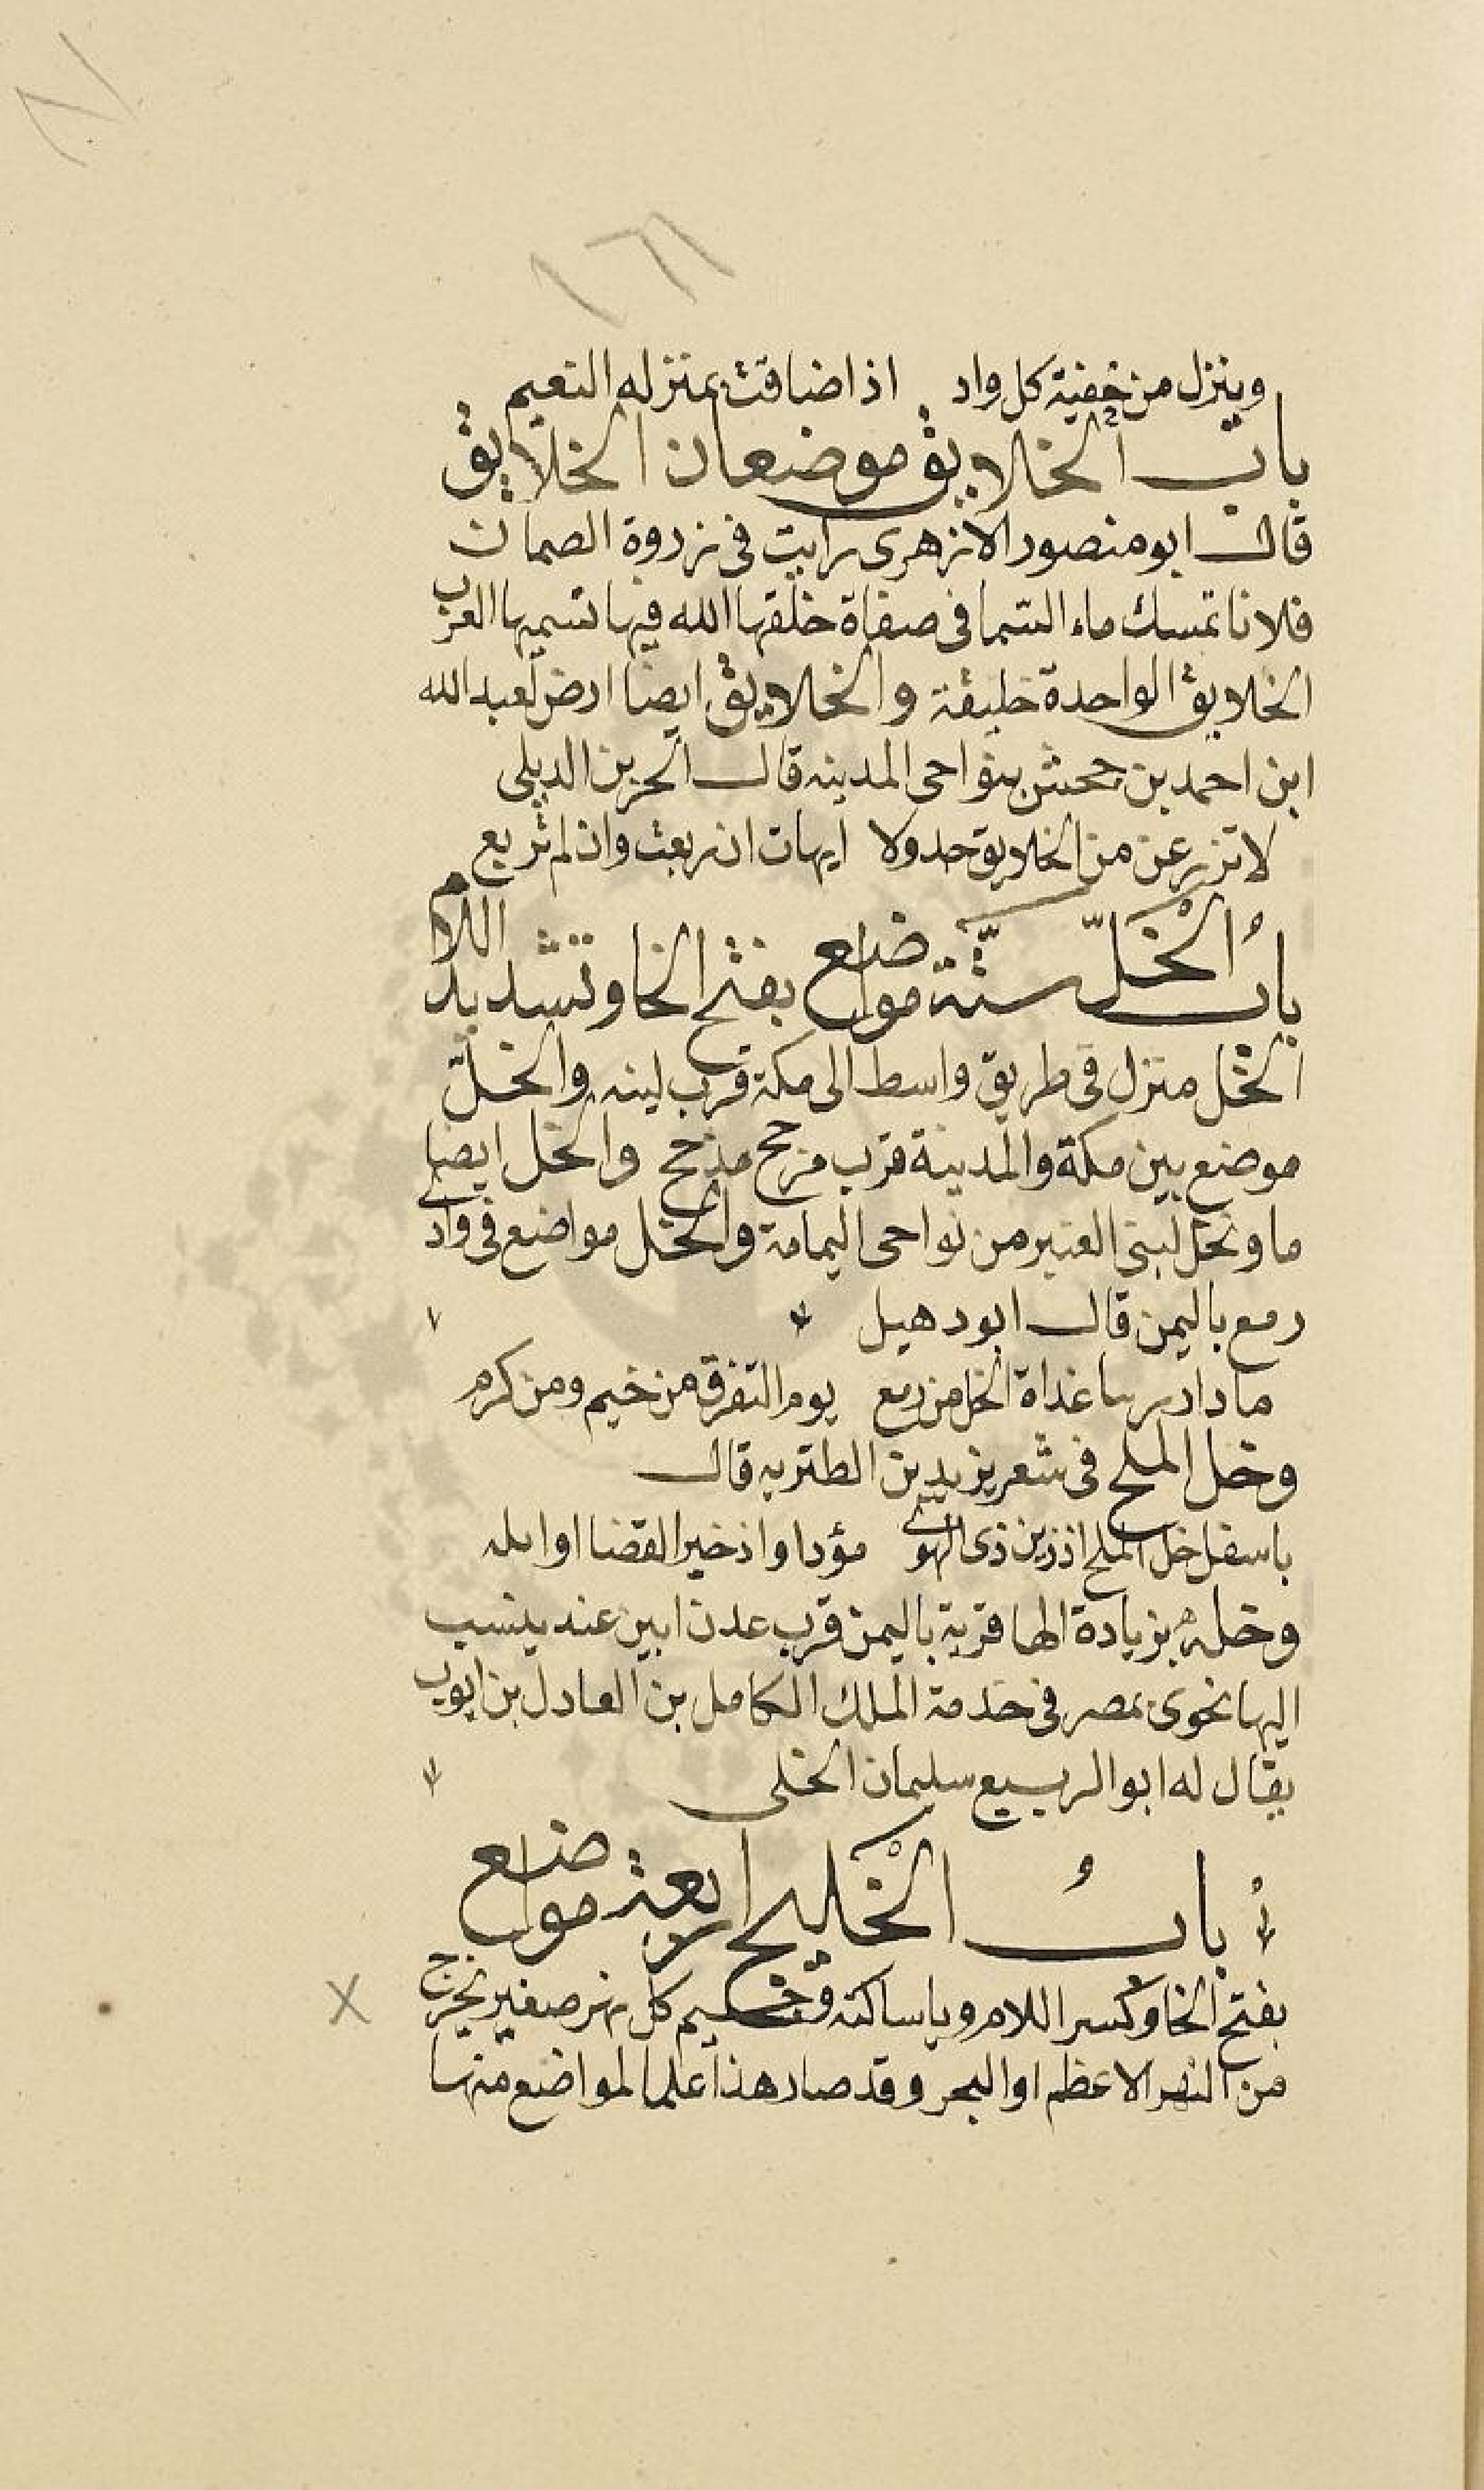 ٨١
١٦١
وينزل من خفية كل واد اذا ضاقت بمنزله النعيم
باب الخلايق موضعان الخلايق
قال ابو منصور الازهرى رايت فى زدوة الصمان
فلانا تمسك ماء السّما فى صفاة خلقها الله فيها تسميها العرب
الخلايق الواحدة خليقة والخلايق ايضا ارض لعبد الله
ابن احمد بن جحش بنواحى المدينه قال الحزين الديلى
لا تزرعن من الخلايق جدولا ايهات ان ربعت وان لم تربع
بابُ الْخَلّ ستّة مواضع بفتح الخا وتشديد اللام
الخل منزل فى طريق واسط الى مكة قرب لينه والخلّ
موضع بين مكة والمدينة قرب مرجح مذحج والخل ايضا
ما ونخل لبنى العنبر من نواحى اليمامة والخل مواضع فى وادى
رمع باليمن قال ابو دهبل
ماذا رسا غداة الخل من رمع يوم التفرق من خيم ومن كرم
وخل الملح فى شعر يزيد بن الطثريه قال
باسفل خل الملح اذ زين ذى الهوى مؤدا واذ خير القضا اوايله
وخلة بزيادة الها قرية باليمن قرب عدن ابين عند ينسب
اليها نحوى بمصر فى خدمة الملك الكامل بن العادل بن ايوب
يقال له ابو الربيع سليمان الخلى
بابُ الْخَليج اربعة مواضع
بفتح الخا وكسر اللام ويا ساكنه وجيم كل نهر صغير يخرج
من النهر الاعظم او البحر وقد صار هذا علما لمواضع منها